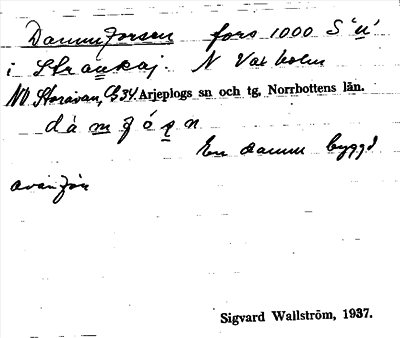 Dammforsen fors 1000 S "u"
i Straukaj. N Vaxholm
NV Storavan, Cb 34. Arjeplogs sn och tg, Norrbottens län.
dàmfóṣn
En damm byggd
ovanför
Sigvard Wallström, 1937.